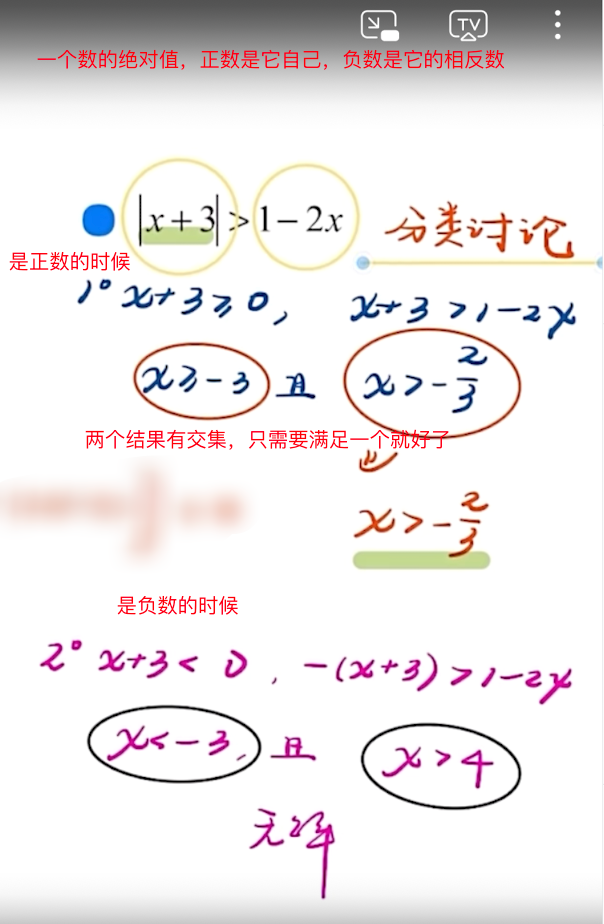 TV
一个数的绝对值，正数是它自己，负数是它的相反数
|x+3|>1-2x 分类讨论
是正数的时候
1° x+3≥0, x+3>1-2x
x≥-3 且 x>-2/3
两个结果有交集，只需要满足一个就好了
x>-2/3
是负数的时候
2° x+3<0, -(x+3)>1-2x
x<-3, 且 x>4
无解